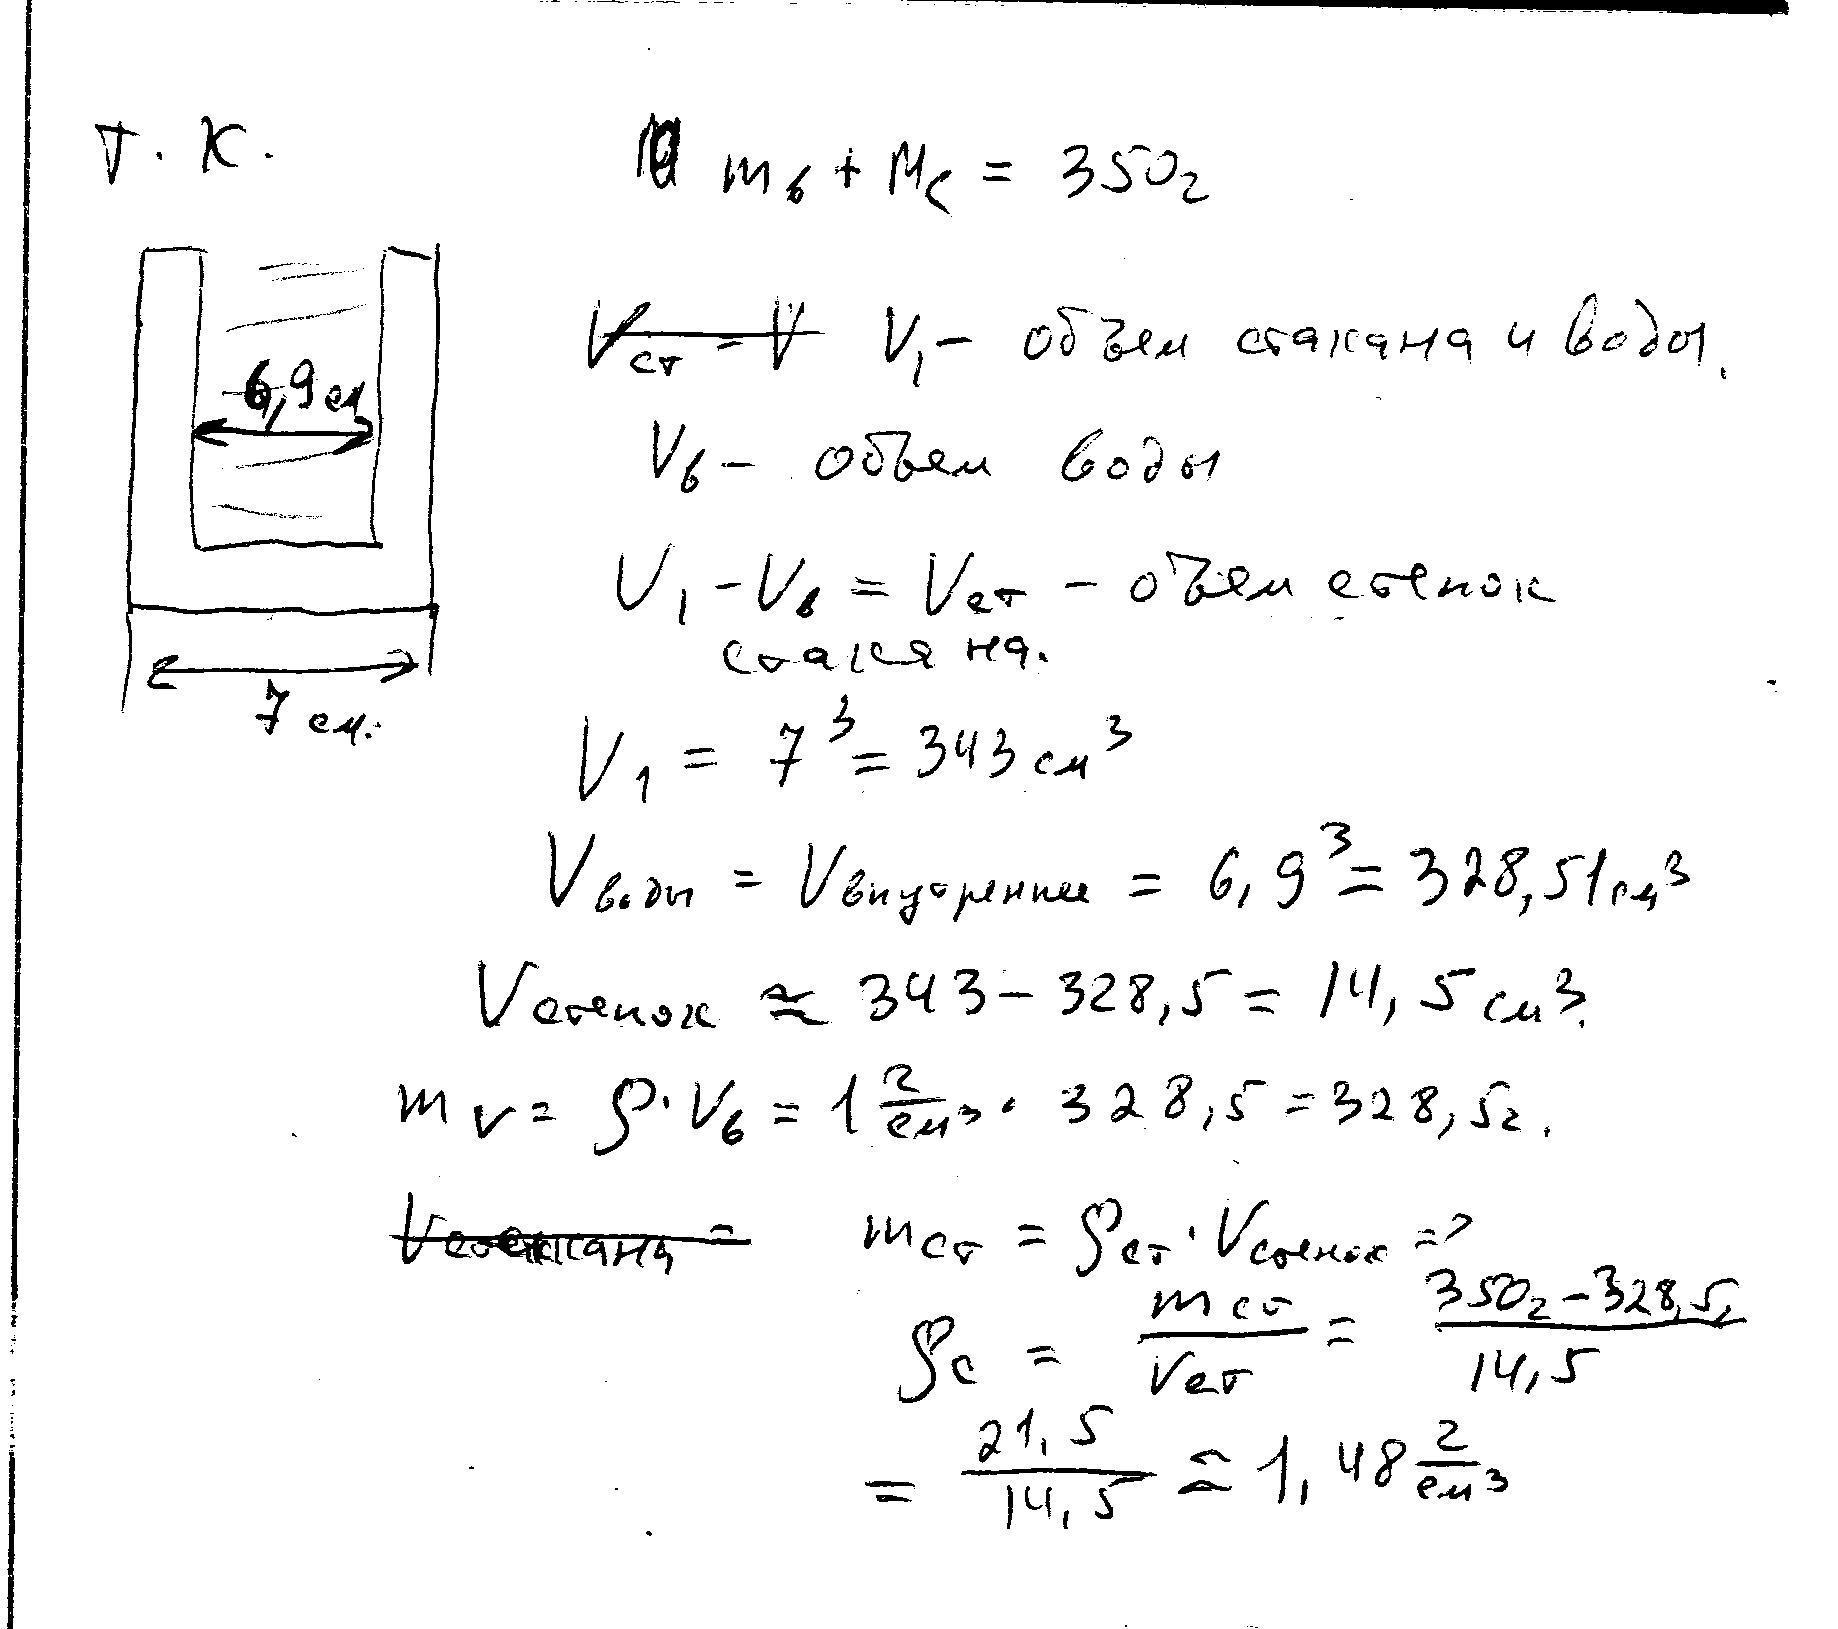 т. к.
m в + Mс = 350г
6,9 см
7 см.
Vст - V V₁ - объем стакана и воды.
Vв - объем воды
V₁ - Vв = Vст - оъем стенок
стакана.
V₁ = 7³ = 343 см³
Vводы = Vвнутреннее = 6,9³ = 328,51 см³
Vстенок ≈ 343 - 328,5 = 14,5 см³.
mv = ρ · Vв = 1 г/см³ · 328,5 = 328,5г.
mст = ρст · Vстенок =>
ρс = mст/Vст = 350г - 328,5г/14,5
= 21,5/14,5 ≈ 1,48 г/см³